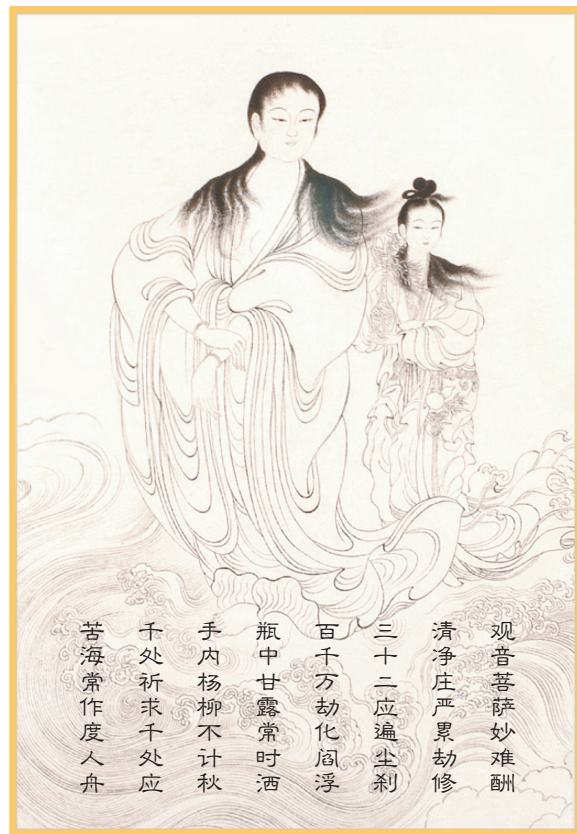 观音菩萨妙难酬
清净庄严累劫修
三十二应遍尘刹
百千万劫化阎浮
瓶中甘露常时洒
手内杨柳不计秋
千处祈求千处应
苦海常作度人舟